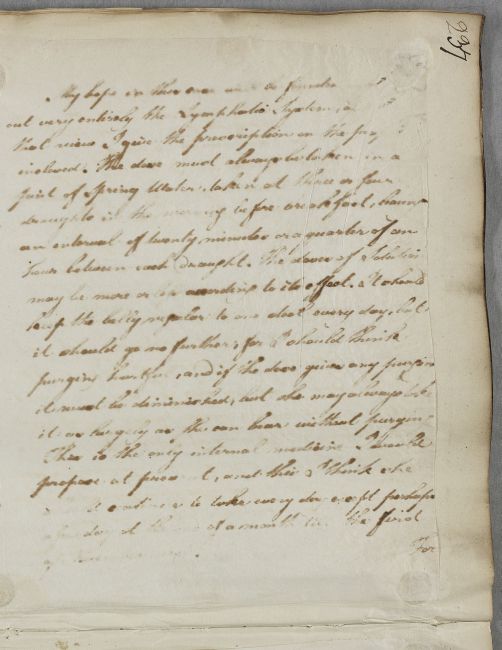 My hope in this case
out very entirely the Lymphatic System,
that view I give the prescription on the
inclosed. The dose must always be taken in a
pint of Spring Water, taken at three or four
draughts in the morning before breakfast,
an interval of twenty minutes or a quarter of an
hour between each draught. The dose of Solution
may be more or less according to its effect. It should
keep the belly regular to one stool every day, but
it should go no further, for I should think
purging hurtful, and if the dose gives any purging
it must be diminished, but she may always take
it as largely as she can bear without purging
This is the only internal medicine I would
propose at present, and this I think she
to take every day except perhaps
a few days at the of a month the first
For
234